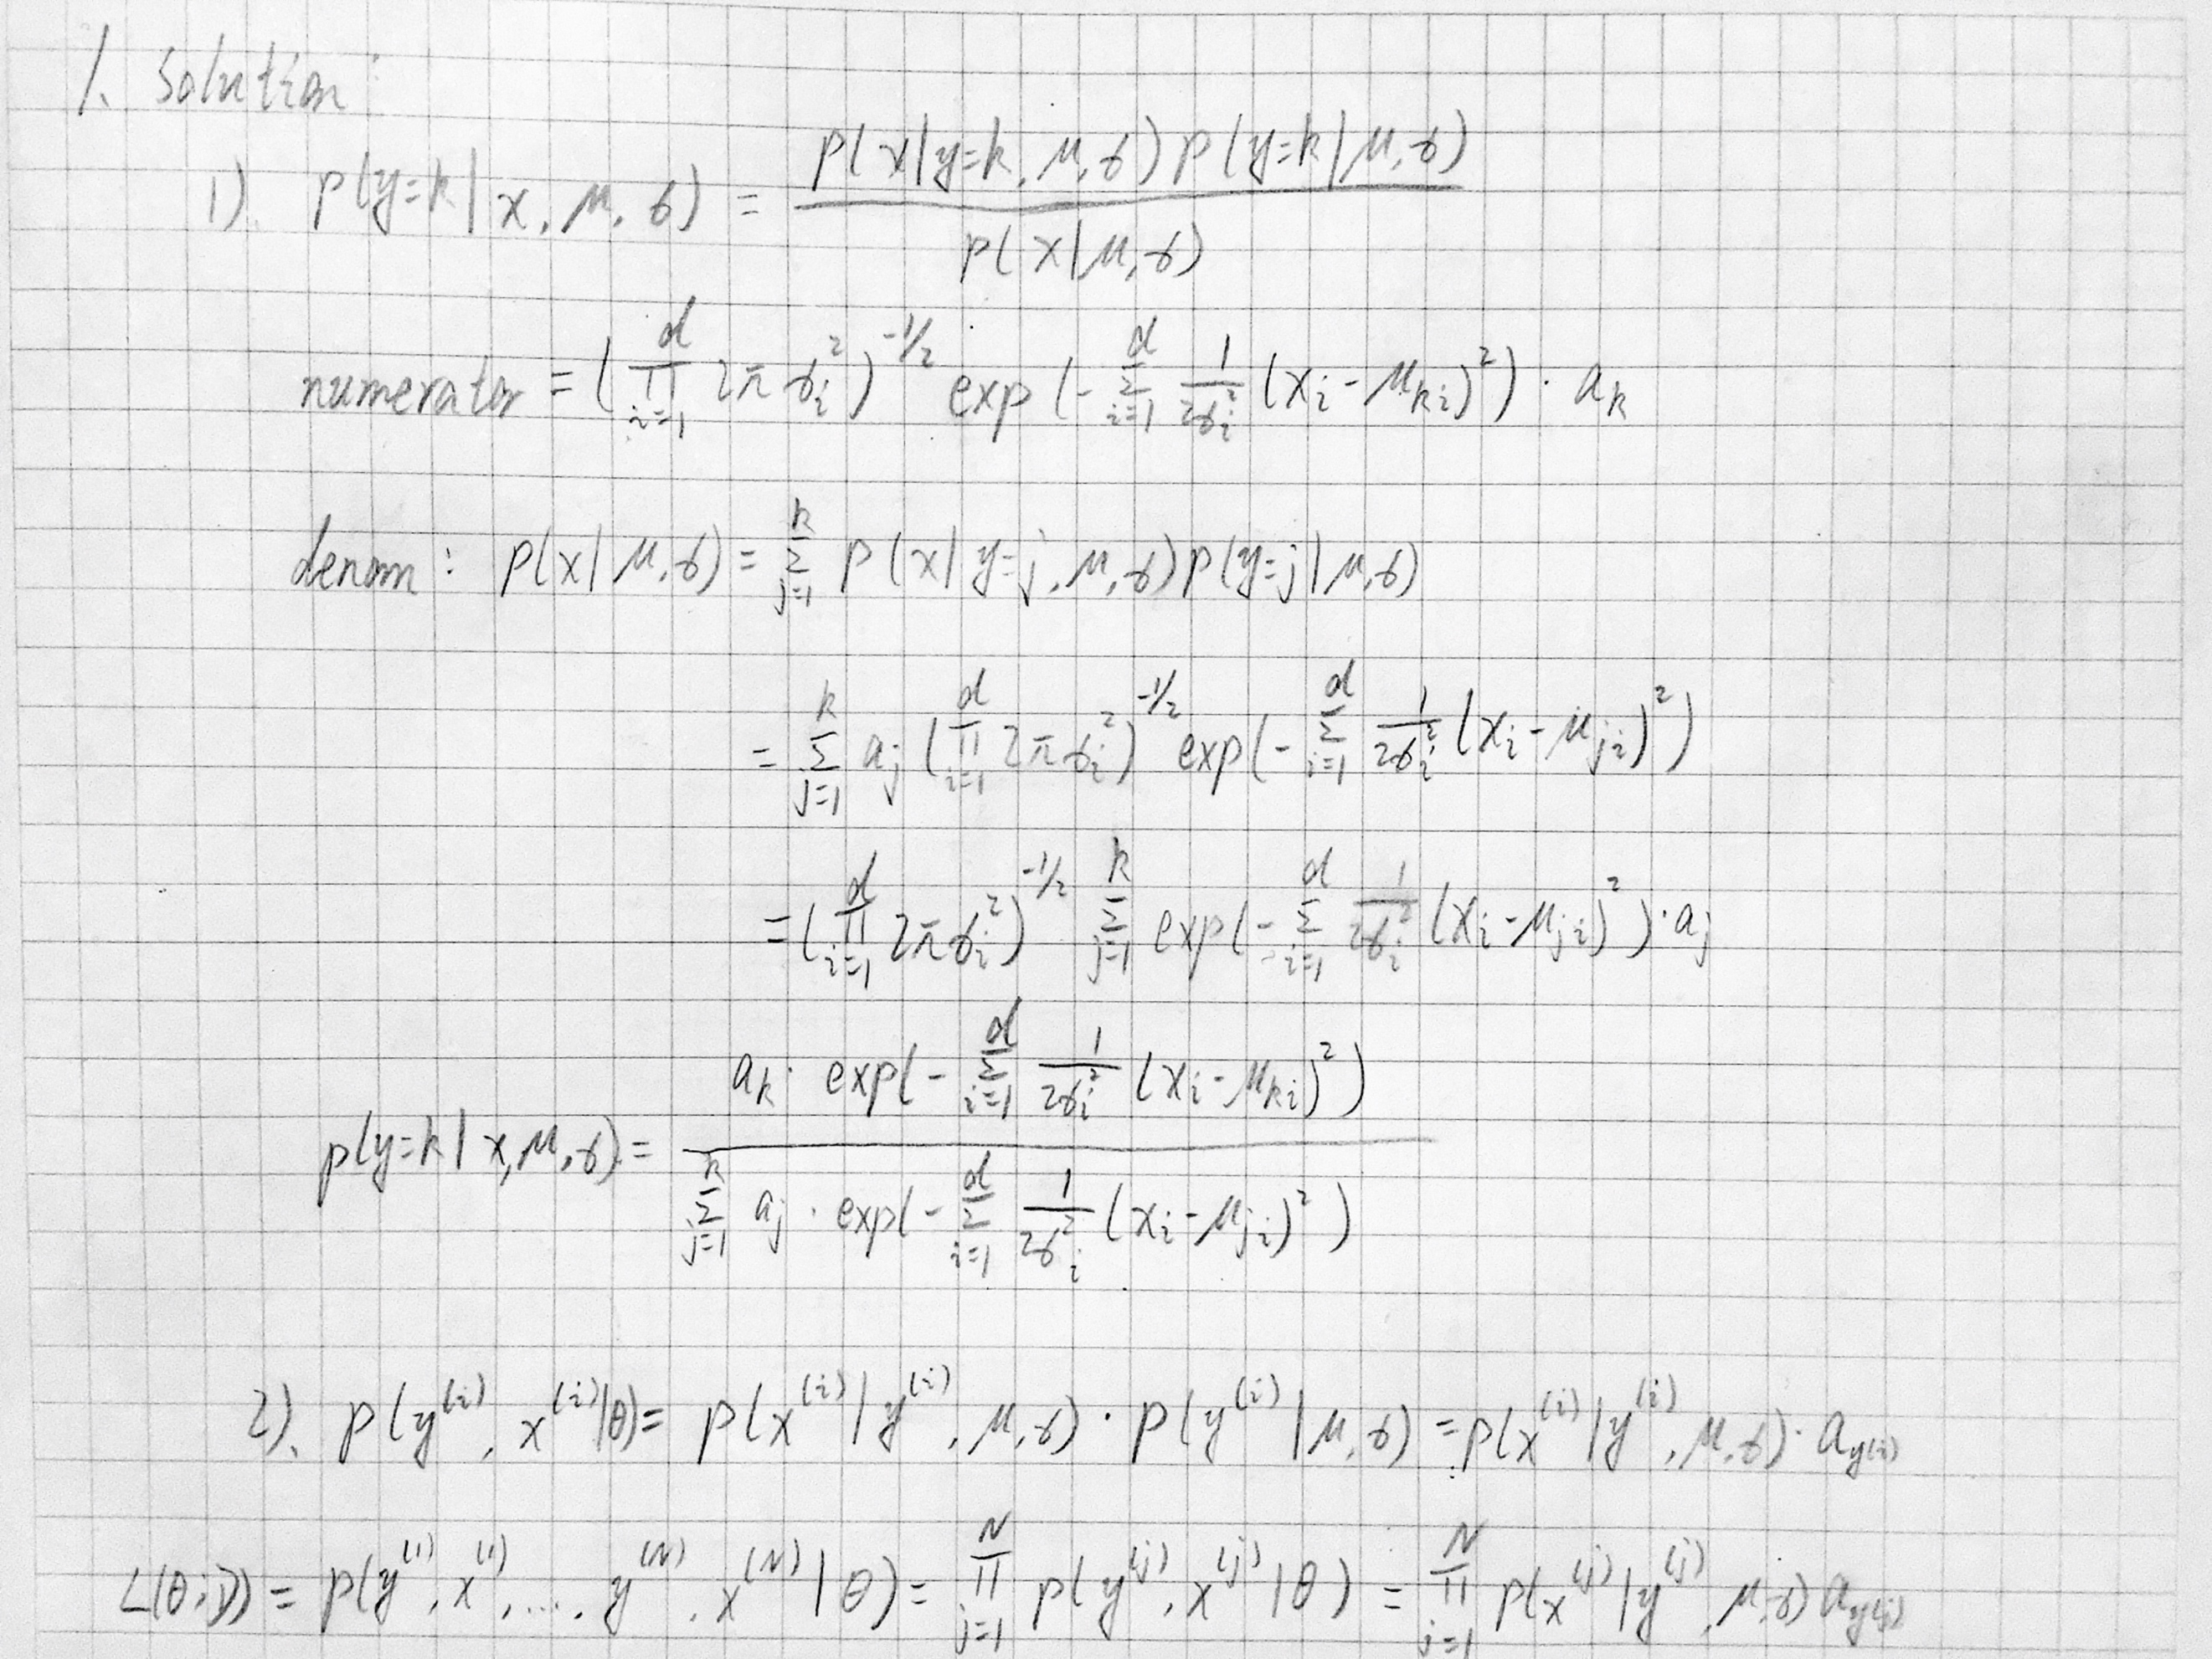 1. Solution:
1). p(y=k | x, μ, σ) = p(x|y=k, μ, σ) p(y=k|μ, σ) / p(x|μ, σ)
numerator = (∏_{i=1}^{d} 2π σ_i^2)^{-1/2} exp(-∑_{i=1}^{d} 1/(2σ_i^2) (x_i - μ_{ki})^2) · a_k
denom: p(x|μ, σ) = ∑_{j=1}^{k} p(x|y=j, μ, σ) p(y=j|μ, σ)
= ∑_{j=1}^{k} a_j (∏_{i=1}^{d} 2π σ_i^2)^{-1/2} exp(-∑_{i=1}^{d} 1/(2σ_i^2) (x_i - μ_{ji})^2)
= (∏_{i=1}^{d} 2π σ_i^2)^{-1/2} ∑_{j=1}^{k} exp(-∑_{i=1}^{d} 1/(2σ_i^2) (x_i - μ_{ji})^2) · a_j
p(y=k | x, μ, σ) = a_k · exp(-∑_{i=1}^{d} 1/(2σ_i^2) (x_i - μ_{ki})^2) / ∑_{j=1}^{k} a_j · exp(-∑_{i=1}^{d} 1/(2σ_i^2) (x_i - μ_{ji})^2)
2). p(y^{(i)}, x^{(i)}|θ) = p(x^{(i)}|y^{(i)}, μ, σ) · p(y^{(i)}|μ, σ) = p(x^{(i)}|y^{(i)}, μ, σ) · a_{y^{(i)}}
L(θ; D) = p(y^{(1)}, x^{(1)}, ..., y^{(N)}, x^{(N)}|θ) = ∏_{j=1}^{N} p(y^{(j)}, x^{(j)}|θ) = ∏_{j=1}^{N} p(x^{(j)}|y^{(j)}, μ, σ) a_{y^{(j)}}